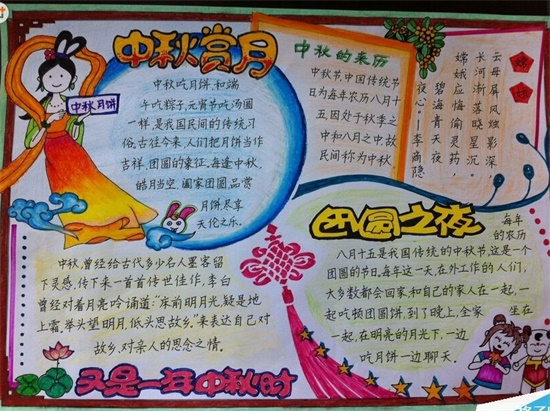 中秋赏月
中秋月饼
中秋吃月饼,和端
午吃粽子,元宵节吃汤圆
一样,是我国民间的传统习
俗,古往今来,人们把月饼当作
吉祥,团圆的象征,每逢中秋,
皓月当空,阖家团圆,品赏
月饼,尽享
天伦之乐。
中秋的来历
中秋节,中国传统节
日为每年农历八月十
五,因处于秋季之
中和八月之中,故
民间称为中秋
嫦娥
云母屏风烛影深
长河渐落晓星沉。
嫦娥应悔偷灵药,
碧海青天夜
夜心。—李商隐
中秋,曾经给古代多少名人墨客留
下灵感,传下来一首首传世佳作,李白
曾经对着月亮吟诵道:"床前明月光,疑是地
上霜,举头望明月,低头思故乡。"来表达自己对
故乡,对亲人的思念之情。
团圆之夜
每年
的农历
八月十五是我国传统的中秋节,这是一个
团圆的节日,每年这一天,在外工作的人们,
大多数都会回家,和自己的家人在一起,一
起吃顿团圆饼,到了晚上,全家坐在
一起,在明亮的月光下,一边
吃月饼一边聊天。
又是一年中秋时